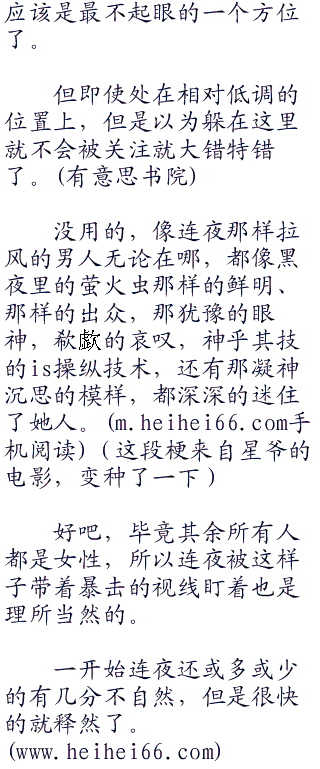 应该是最不起眼的一个方位
了。
但即使处在相对低调的
位置上，但是以为躲在这里
就不会被关注就大错特错
了。(有意思书院)
没用的，像连夜那样拉
风的男人无论在哪，都像黑
夜里的萤火虫那样的鲜明、
那样的出众，那犹豫的眼
神，欷歔的哀叹，神乎其技
的is操纵技术，还有那凝神
沉思的模样，都深深的迷住
了她人。(m.heihei66.com手
机阅读)（这段梗来自星爷的
电影，变种了一下）
好吧，毕竟其余所有人
都是女性，所以连夜被这样
子带着暴击的视线盯着也是
理所当然的。
一开始连夜还或多或少
的有几分不自然，但是很快
的就释然了。
(www.heihei66.com)